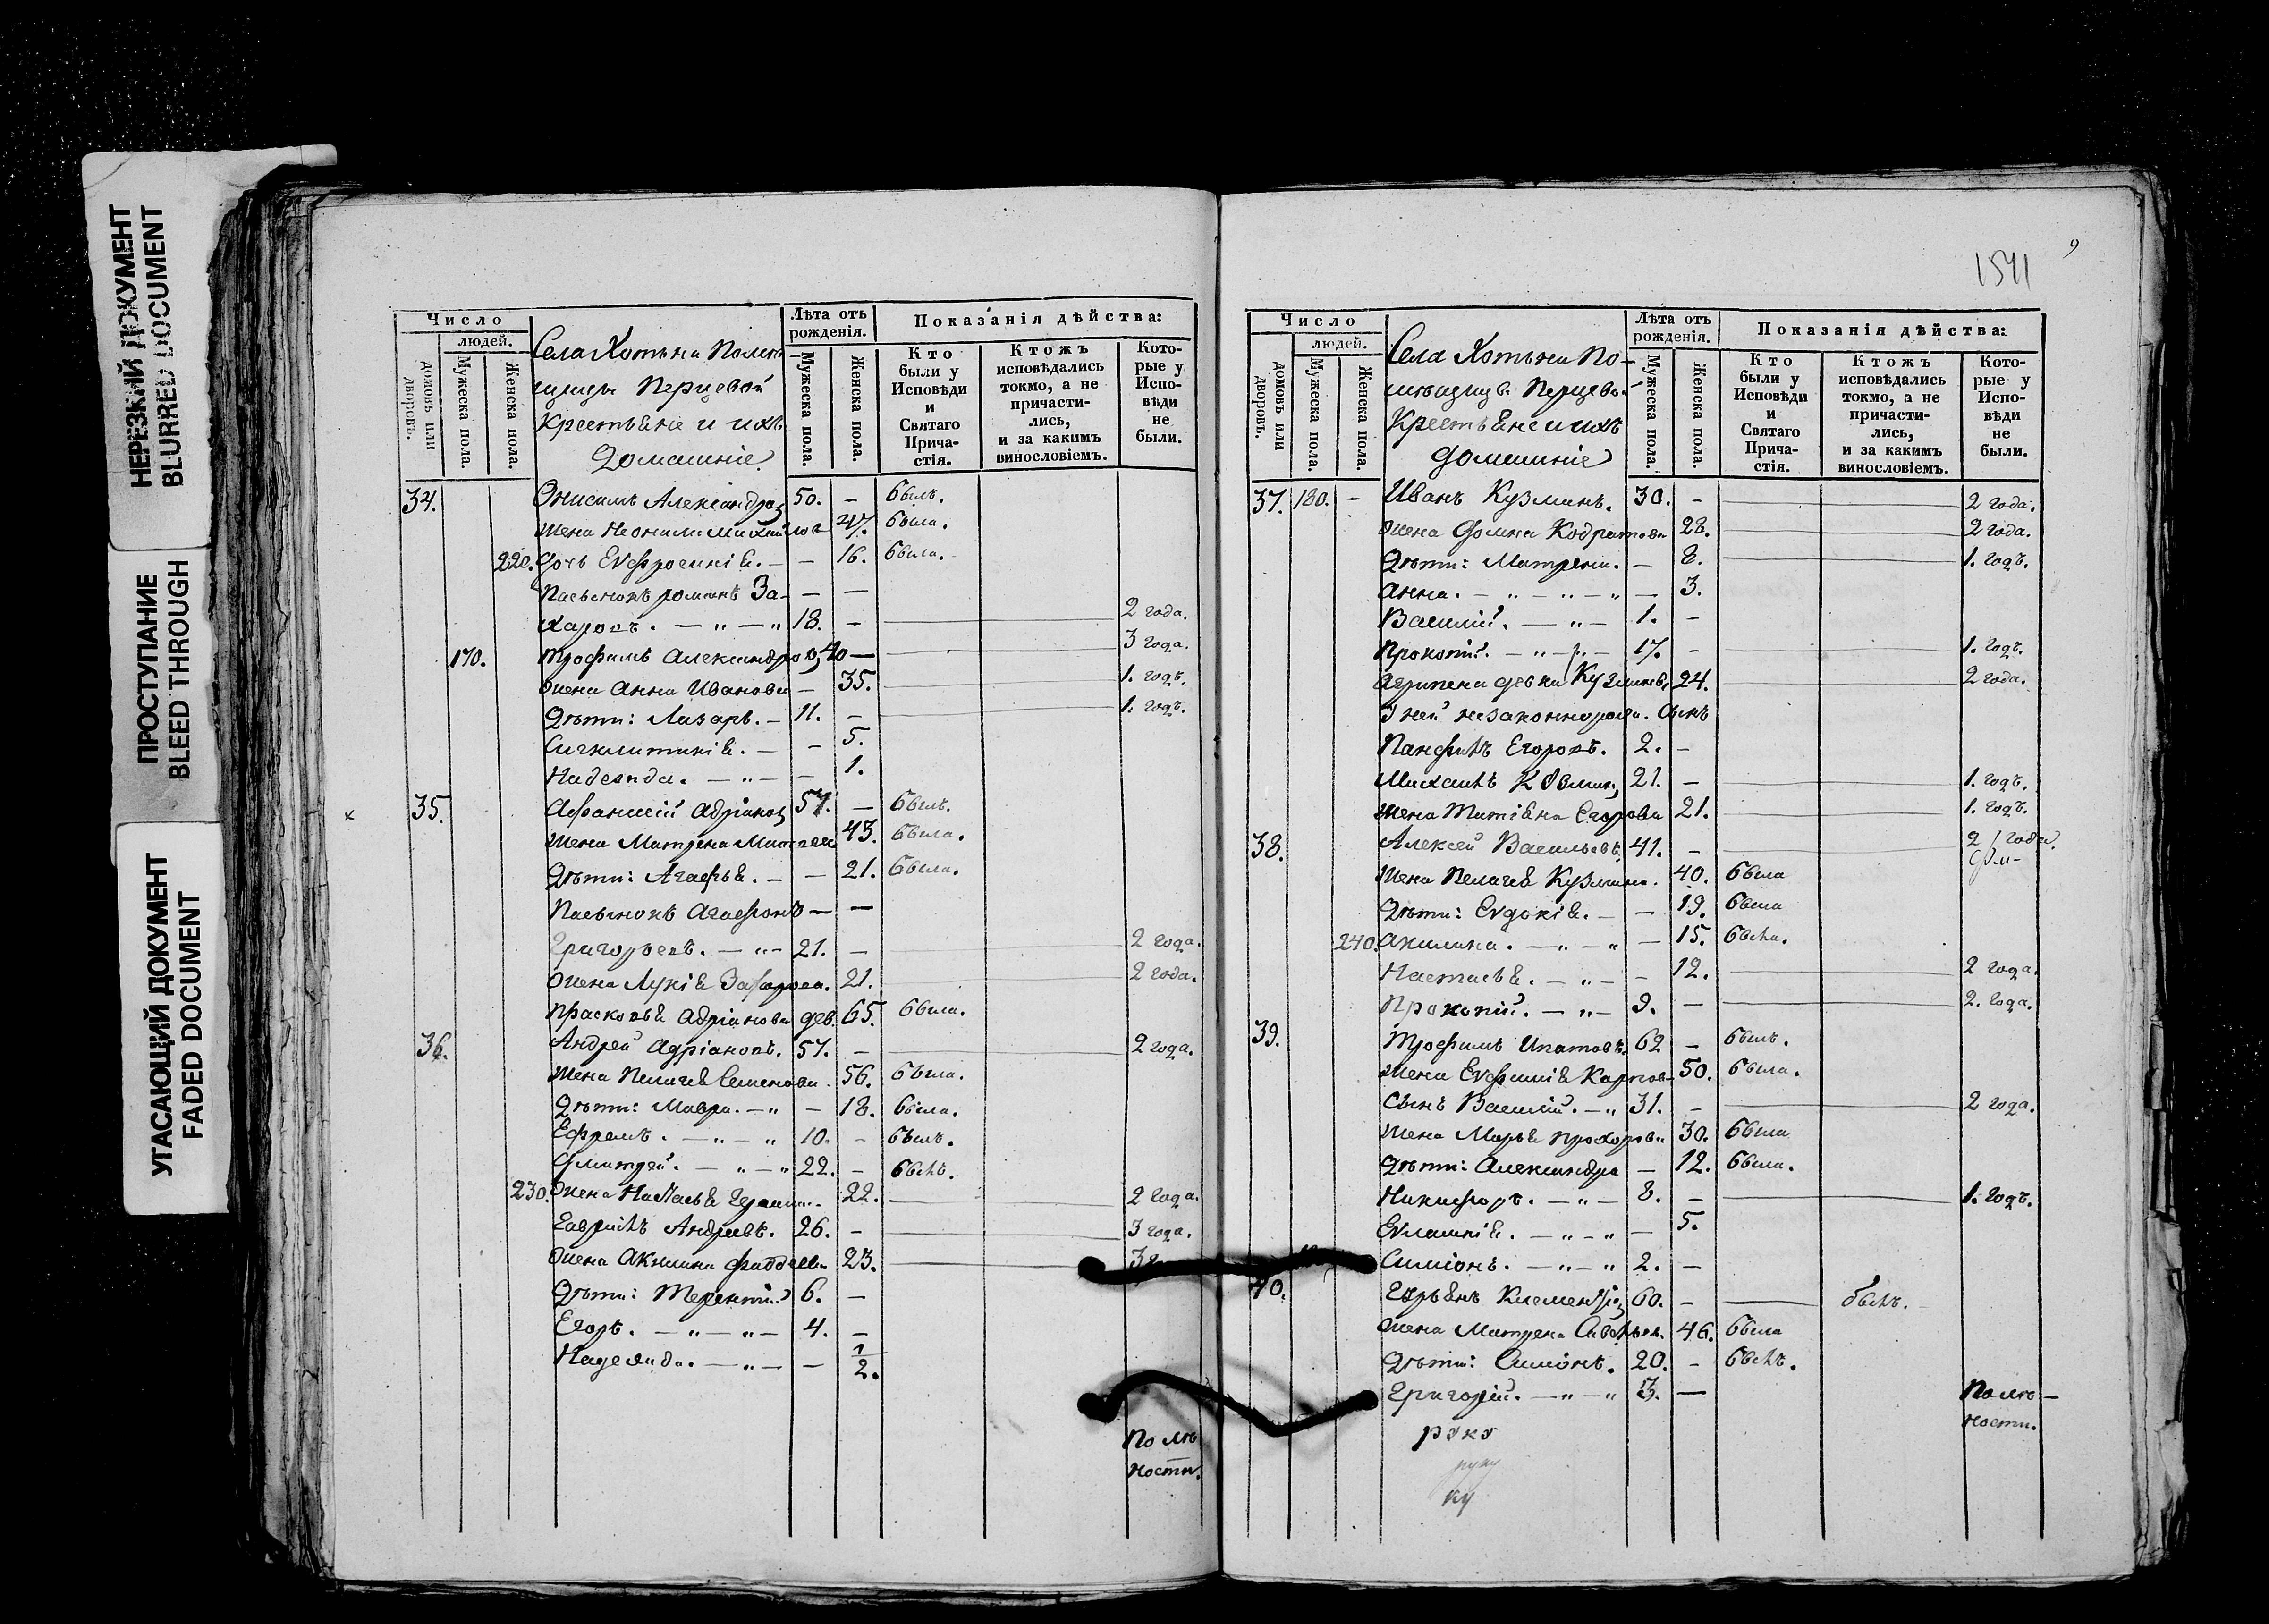 НЕРЕЗКИЙ ДОКУМЕНТ
BLURRED DOCUMENT
ПРОСТУПАНИЕ
BLEED THROUGH
УГАСАЮЩИЙ ДОКУМЕНТ
FADED DOCUMENT
Число
людей.
домовъ или дворовъ.
Мужеска пола.
Женска пола.
Села Хотына
Перцевой
Крестьяне и ихъ
Домашніе
Лѣта отъ рожденія.
Мужеска пола.
Женска пола.
Показанія дѣйства:
Кто были у Исповѣди и Святаго Причастія.
Ктожъ исповѣдались токмо, а не причастились, и за какимъ винословіемъ.
Которые у Исповѣди не были.
34. Онисимъ Александров 50. — былъ.
жена Неонила Михайлова 47. была.
220. Дочь Евфросинія. — — 16. была.
Пасынокъ романъ За- — —
харовъ. — „ — „ 18. — 2 года.
170. Трофимъ Александров 40 — 3 года.
жена Анна Иванова — 35. 1. годъ.
Дѣти: Лазарь. — 11. — 1. годъ.
Сигклитикія. — — 5.
Надежда. — „ — — 1.
х 35. Афанасій Адріанов 57. — былъ.
жена Матрена 43. была.
Дѣти: Агафья. — — 21. была.
Пасынокъ Агафонъ — —
Григорьевъ. — „ — 21. — 2 года.
жена Лукія Захарова. 21. 2 года.
Прасковья Адріанова дев. 65. была.
36. Андрей Адріановъ. 57. — 2 года.
жена Пелагея Семенова. 56. была.
Дѣти: Мавра. — „ — 18. была.
Ефремъ. — „ — „ 10. — былъ.
Дмитрей. — „ — „ 22. — былъ.
230. жена 22. 2 года.
Гаврилъ Андреевъ. 26. — 3 года.
жена Акилина Фаддеева 23. 3
Дѣти: Терентій 6. —
Егоръ. — „ — „ — 4. —
Надежда. — „ — — 1/2.
По лѣ
ности.
9
1541
Число
людей.
домовъ или дворовъ.
Мужеска пола.
Женска пола.
Села Хотына По-
мѣщицы Перцевой
Крестьяне и ихъ
домашніе
Лѣта отъ рожденія.
Мужеска пола.
Женска пола.
Показанія дѣйства:
Кто были у Исповѣди и Святаго Причастія.
Ктожъ исповѣдались токмо, а не причастились, и за какимъ винословіемъ.
Которые у Исповѣди не были.
37. 180. — Иванъ Кузминъ. 30. — 2 года.
жена Домна Кодратова 28. 2 года.
Дѣти: Матрена. — 8. 1. годъ.
Анна. — „ — „ — „ — 3.
Василій. — „ — 1. —
Прокопій. — „ — 17. — 1. годъ.
Агрипена девка Кузминa 24. 2 года.
У ней незаконнорож. сынъ
Панфилъ Егоровъ. 2. —
Михаилъ Козмин 21. — 1. годъ.
жена Татіяна Егорова 21. 1. годъ.
38. Алексей Васильевъ 41. — 2 года.
жена Пелагея Кузмина. 40. была
Дѣти: Евдокія. — — 19. была
240. Акилина. — „ — „ — 15. была.
Настасья. — „ — — 12. 2 года.
Прокопій. — „ — 9. — 2. года.
39. Трофимъ Ипатовъ. 62 — былъ.
жена Евфимія Карпова 50. была.
сынъ Василій. — „ 31. — 2 года.
жена Марья Прохорова 30. была
Дѣти: Александра — 12. была.
Никифоръ. — „ — 8. — 1. годъ.
Евлампія. — „ — „ — 5.
Симіонъ. — „ — „ 2. —
40. Клементьев 60. — былъ.
жена Матрена 46. была
Дѣти: Симіонъ. 20. — былъ.
Григорій. — „ — „ 3. —
По лѣ-
ности.
рꙋкꙋ
ку